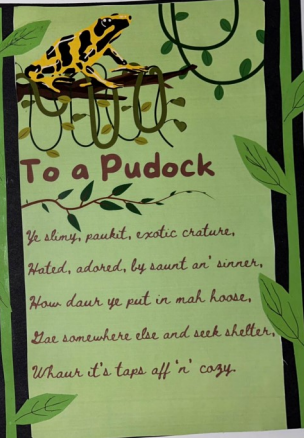 To a Pudock
Ye slimy, paukit, exotic crature,
Hated, adored, by saunt an' sinner,
How daur ye put in mah hoose,
Gae somewhere else and seek shelter,
Whaur it's taps aff 'n' cozy.